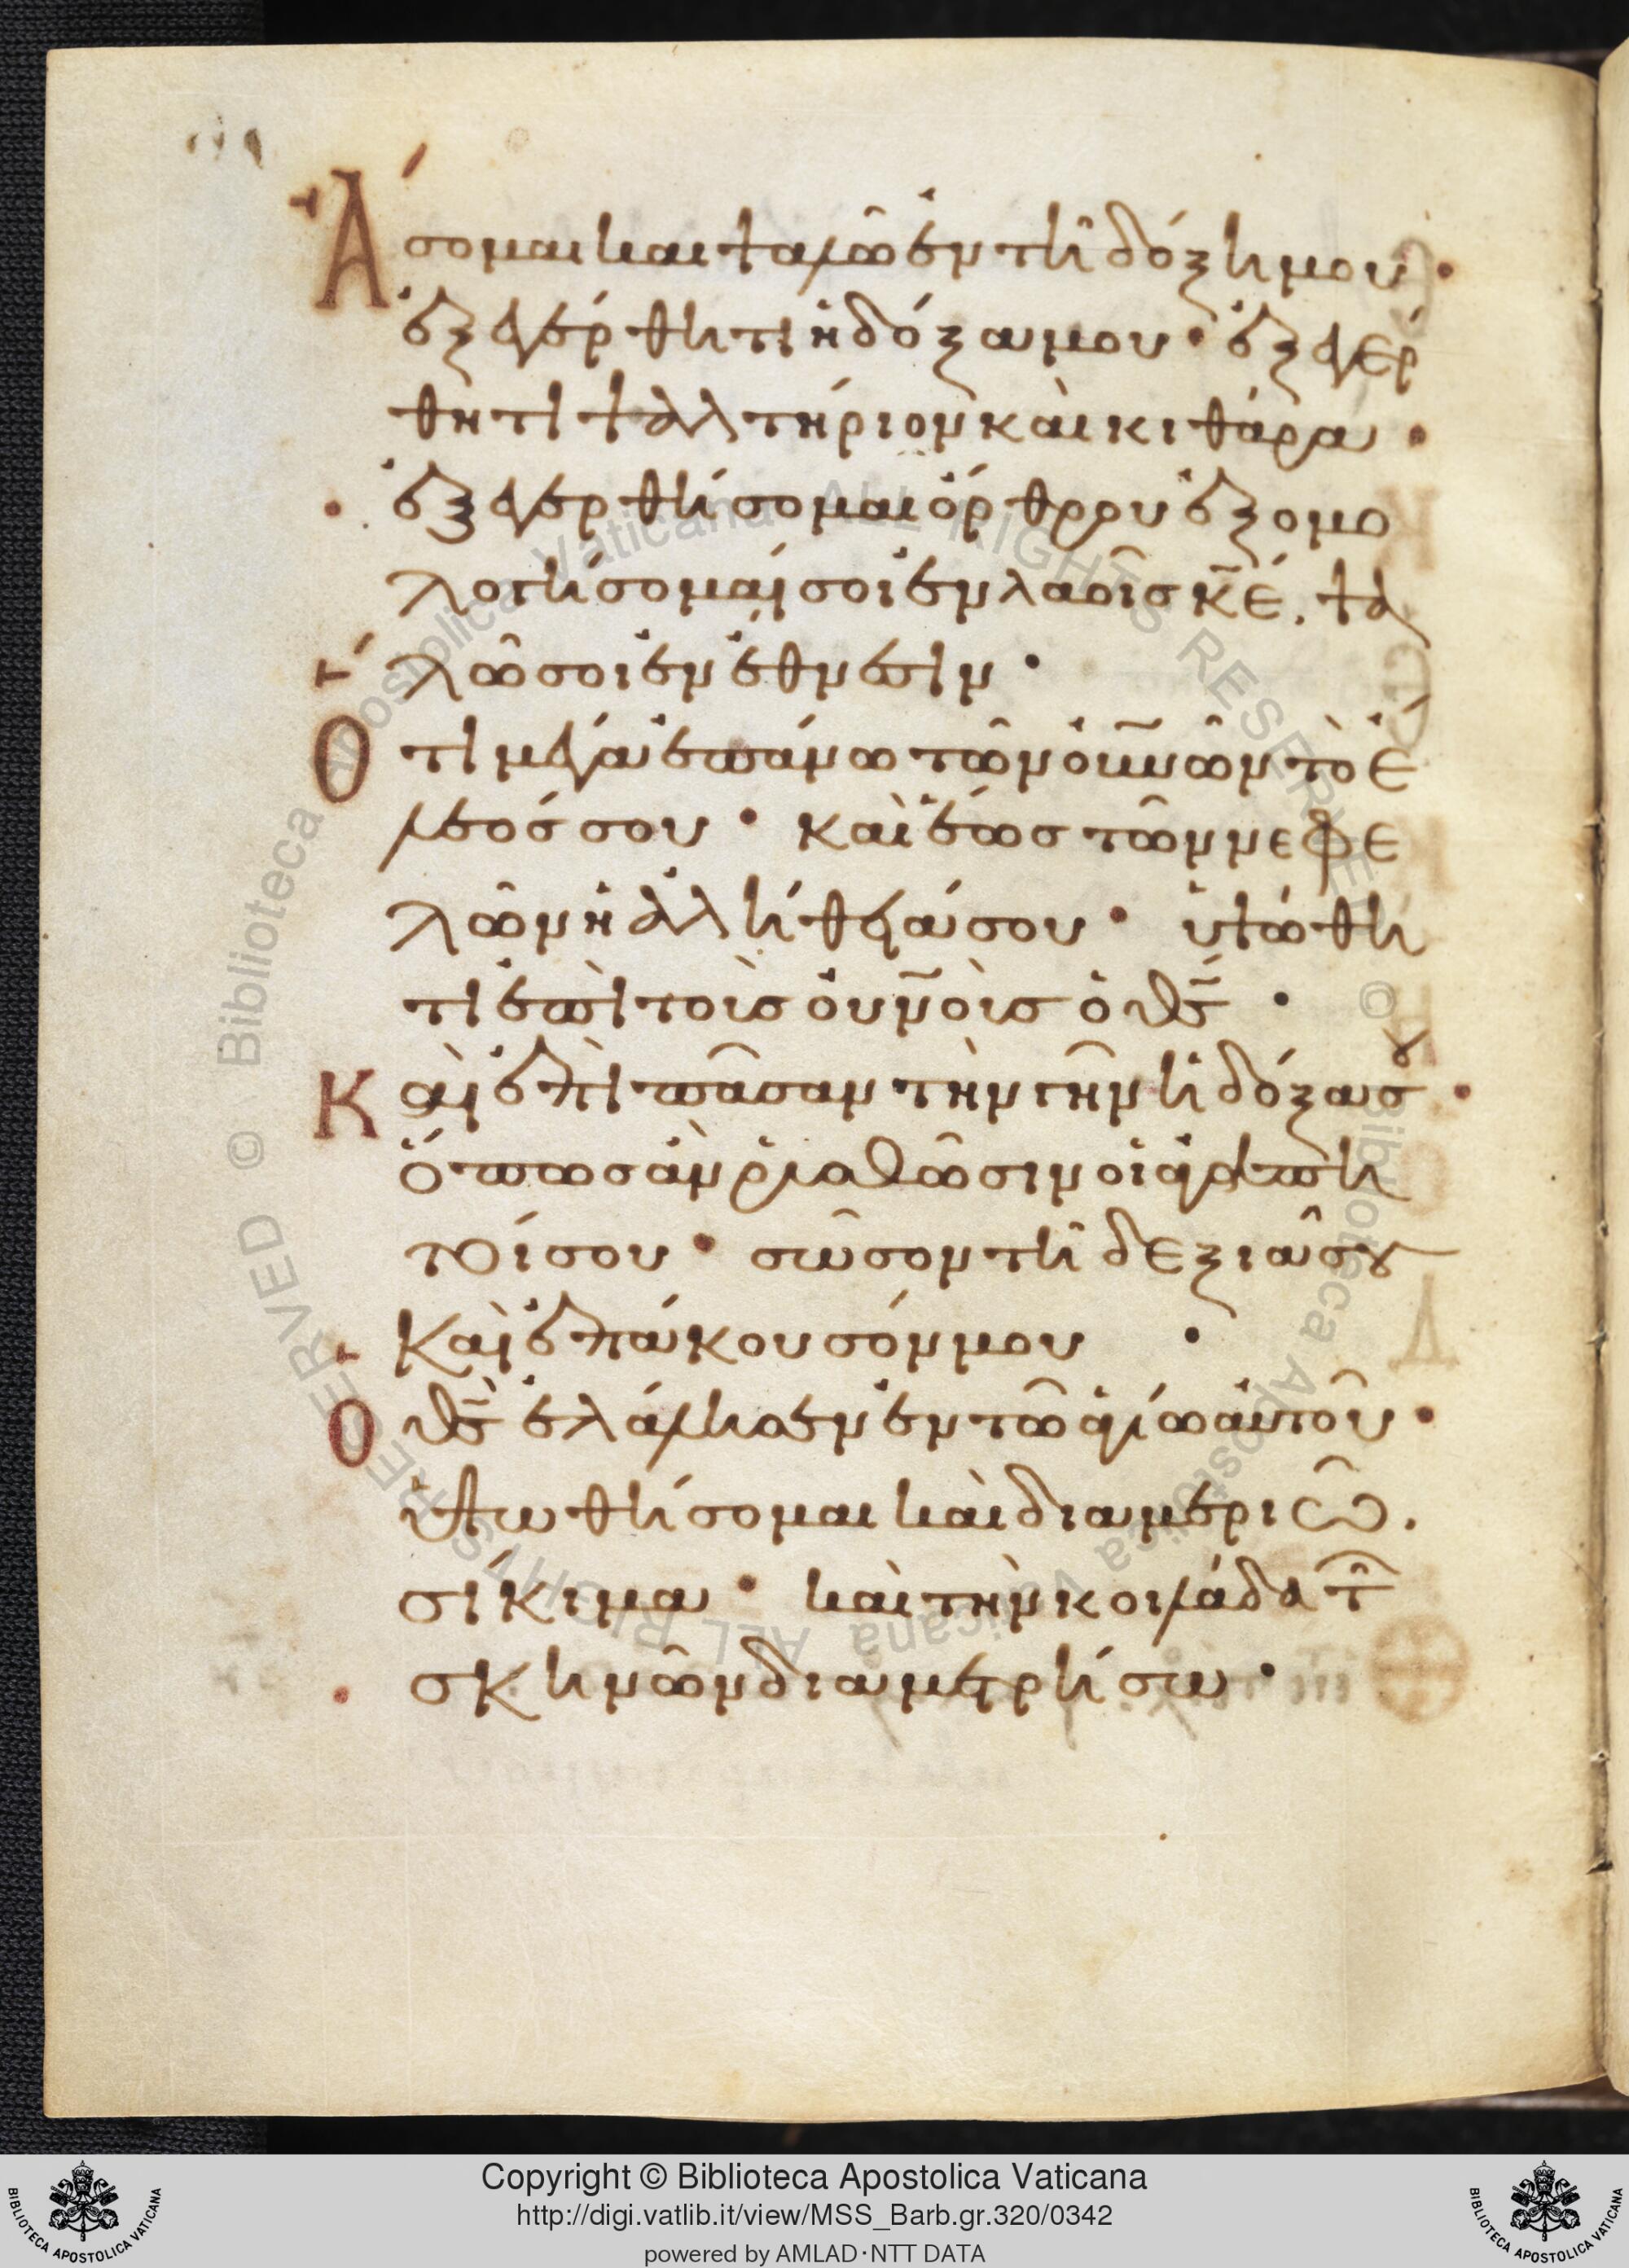 Ἄσομαι και ψαλῶ ἐν τῆ δόξη μου·
ἐξεγέρθητι ἡ δόξα μου· ἐξεγέρ
θητι ψαλτήριον καὶ κιθάρα·
ἐξεγερθήσομαι ὄρθρου ἐξομο
λογήσομαί σοι ἐν λαοῖς κ̅ε̅. ψα
λῶ σοι ἐν ἔθνεσιν·
Ὅτι μέγα ἐπάνω τῶν οὐν̅ῶν τὸ ἔ
λεός σου· καὶ ἕως τῶν νεφε
λῶν ἡ ἀλήθειά σου· ὑψώθη
τι ἐπὶ τοὺς οὐν̅οὺς ὁ θ̅ς̅·
Καὶ ἐπὶ πᾶσαν τὴν γῆν ἡ δόξα σου·
ὅπως ἂν ῥυσθῶσιν οἱ ἀγαπη
τοί σου· σῶσον τῆ δεξιᾶ σου
Καὶ ἐπάκουσόν μου·
Ὁ θ̅ς̅ ἐλάλησεν ἐν τῶ ἁγίω αὐτοῦ·
ὑψωθήσομαι καὶ διαμεριῶ.
σίκιμα· καὶ τὴν κοιλάδα τῶν
σκηνῶν διαμετρήσω·
Copyright © Biblioteca Apostolica Vaticana
http://digi.vatlib.it/view/MSS_Barb.gr.320/0342
powered by AMLAD·NTT DATA
BIBLIOTECA APOSTOLICA VATICANA
BIBLIOTECA APOSTOLICA VATICANA
Biblioteca Apostolica Vaticana ALL RIGHTS RESERVED © Biblioteca Apostolica Vaticana ALL RIGHTS RESERVED ©